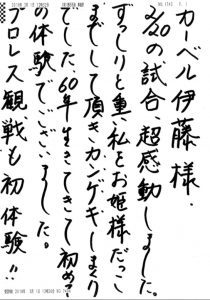 カーベル伊藤様.
2/20の試合超感動しました。
ずっしりと重い私をお姫様だっこ
までして頂きカンゲキしまくり
でした。60年生きてきて初めて
の体験でございました。
プロレス観戦も初体験!!